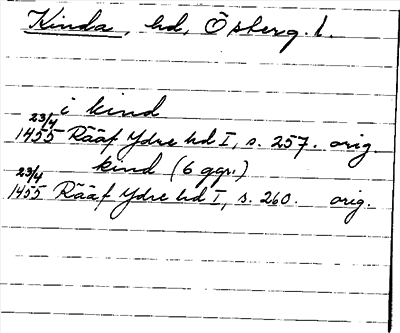 Kinda, hd, Ösberg. l.
i kind
23/4
1455 Rääf Ydre hd I, s. 257. orig.
kind (6 ggr.)
23/4
1455 Rääf Ydre hd I, s. 260. orig.